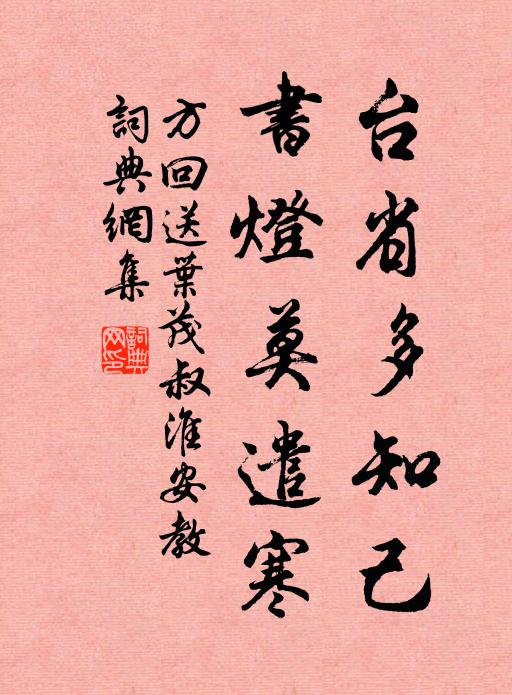 台省多知己
書燈莫遣寒
方回送葉茂叔淮安教
詞典網集
詞典網印